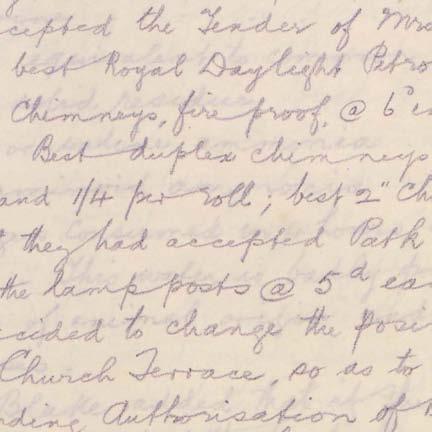 cepted the Tender of Mrs
best Royal Daylight Petro
Chimneys, fire proof, @ 6d ea
Best duplex chimneys
and 1/4 per roll; best 2" Ch
they had accepted Path
the lamp posts @ 5d ea
cided to change the posi
Church Terrace, so as to
nding Authorisation of